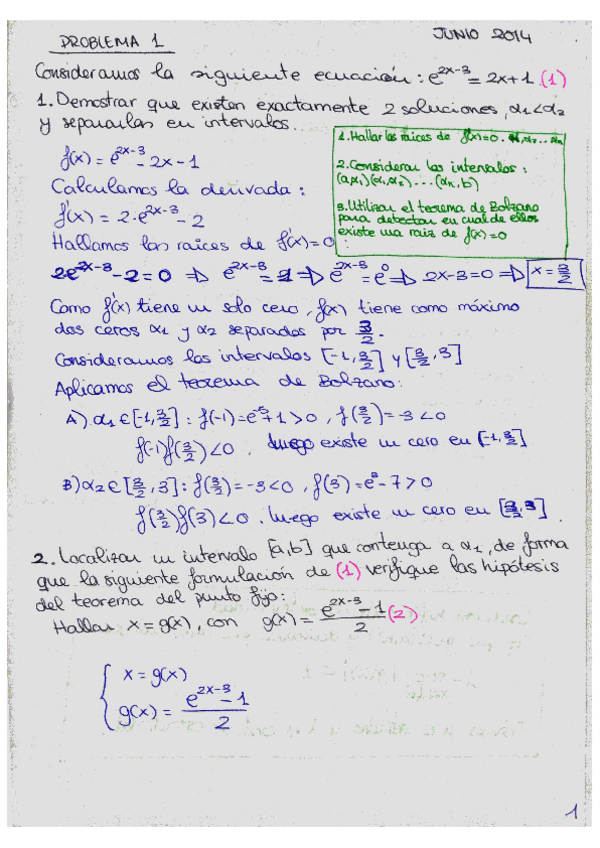 PROBLEMA 1
JUNIO 2014
Consideramos la siguiente ecuación: e^(2x-3) = 2x+1 (1)
1. Demostrar que existen exactamente 2 soluciones, α1<α2
y separarlas en intervalos.
f(x) = e^(2x-3) - 2x - 1
Calculamos la derivada:
f'(x) = 2·e^(2x-3) - 2
Hallamos las raíces de f'(x)=0:
1. Hallar las raíces de f'(x)=0. α1, α2... αn
2. Considerar los intervalos:
(a,α1)(α1,α2)...(αn,b)
3. Utilizar el teorema de Bolzano
para detectar en cual de ellos
existe una raiz de f(x)=0
2e^(2x-3) - 2 = 0 ⇒ e^(2x-3) = 1 ⇒ e^(2x-3) = e^0 ⇒ 2x-3=0 ⇒ x = 3/2
Como f'(x) tiene un solo cero, f(x) tiene como máximo
dos ceros α1 y α2 separados por 3/2.
Consideramos los intervalos [-1, 3/2] y [3/2, 3]
Aplicamos el teorema de Bolzano:
A) α1 ∈ [-1, 3/2]: f(-1) = e^-5 + 1 > 0, f(3/2) = -3 < 0
f(-1)f(3/2) < 0. luego existe un cero en [-1, 3/2]
B) α2 ∈ [3/2, 3]: f(3/2) = -3 < 0, f(3) = e^3 - 7 > 0
f(3/2)f(3) < 0. luego existe un cero en [3/2, 3].
2. Localizar un intervalo [a,b] que contenga a α1, de forma
que la siguiente formulación de (1) verifique las hipótesis
del teorema del punto fijo:
Hallar x = g(x), con g(x) = (e^(2x-3) - 1)/2 (2)
x = g(x)
g(x) = (e^(2x-3) - 1)/2
1